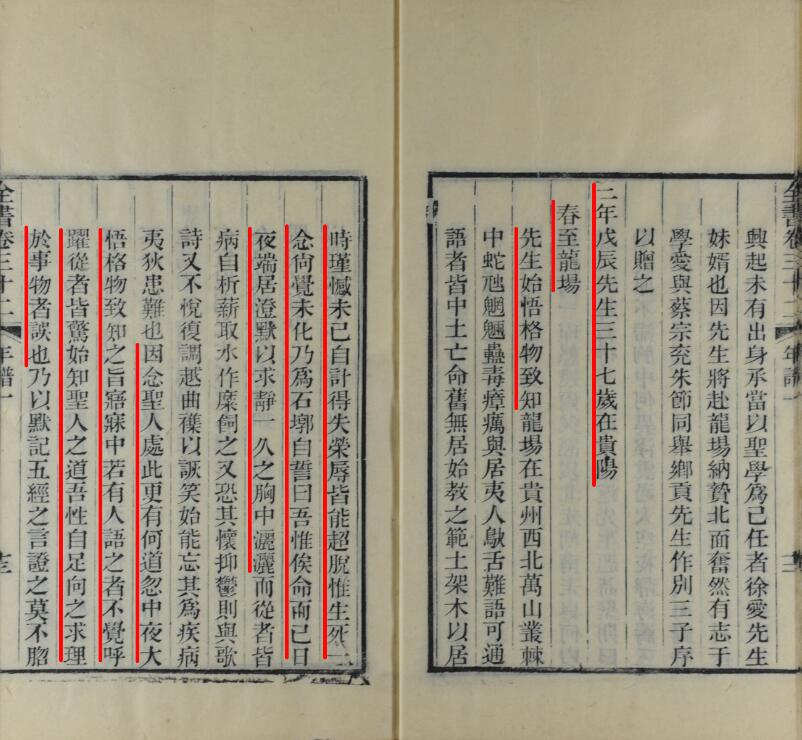 興起未有出身承當以聖學爲己任者徐愛先生
妹婿也因先生將赴龍場納贄北面奮然有志于
學愛與蔡宗兖朱節同舉鄉貢先生作別三子序
以贈之
二年戊辰先生三十七歲在貴陽
春至龍場
先生始悟格物致知龍場在貴州西北萬山叢棘
中蛇虺魍魎蠱毒瘴癘與居夷人鴃舌難語可通
語者皆中土亡命舊無居始教之範土架木以居
時瑾憾未已自計得失榮辱皆能超脫惟生死一
念尙覺未化乃爲石墎自誓曰吾惟俟命而已日
夜端居澄默以求靜一久之胸中灑灑而從者皆
病自析薪取水作糜飼之又恐其懷抑鬱則與歌
詩又不悅復調越曲襍以詼笑始能忘其爲疾病
夷狄患難也因念聖人處此更有何道忽中夜大
悟格物致知之旨寤寐中若有人語之者不覺呼
躍從者皆驚始知聖人之道吾性自足向之求理
於事物者誤也乃以默記五經之言證之莫不脗
全書卷三十二
年譜一